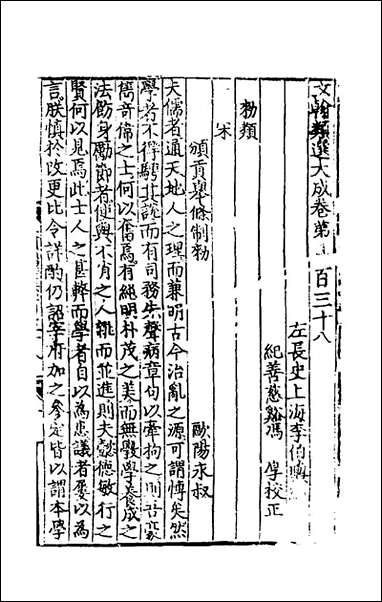 文翰類選大成卷第一百三十八
左長史上海李伯璵
紀善慈谿馮厚校正
勑類
宋
頒貢舉條制勑
歐陽永叔
夫儒者通天地人之理而兼明古今治亂之源可謂博矣然
學者不得騁其說而有司務先聲病章句以牽拘之則吾豪
雋奇偉之士何以奮焉有純明朴茂之美而無斅學養成之
法飭身勵節者使與不肖之人雜而並進則夫懿德敏行之
賢何以見焉此士人之甚弊而學者自以為患議者屢以為
言朕慎於改更比令詳酌仍詔宰府加之參定皆以謂本學